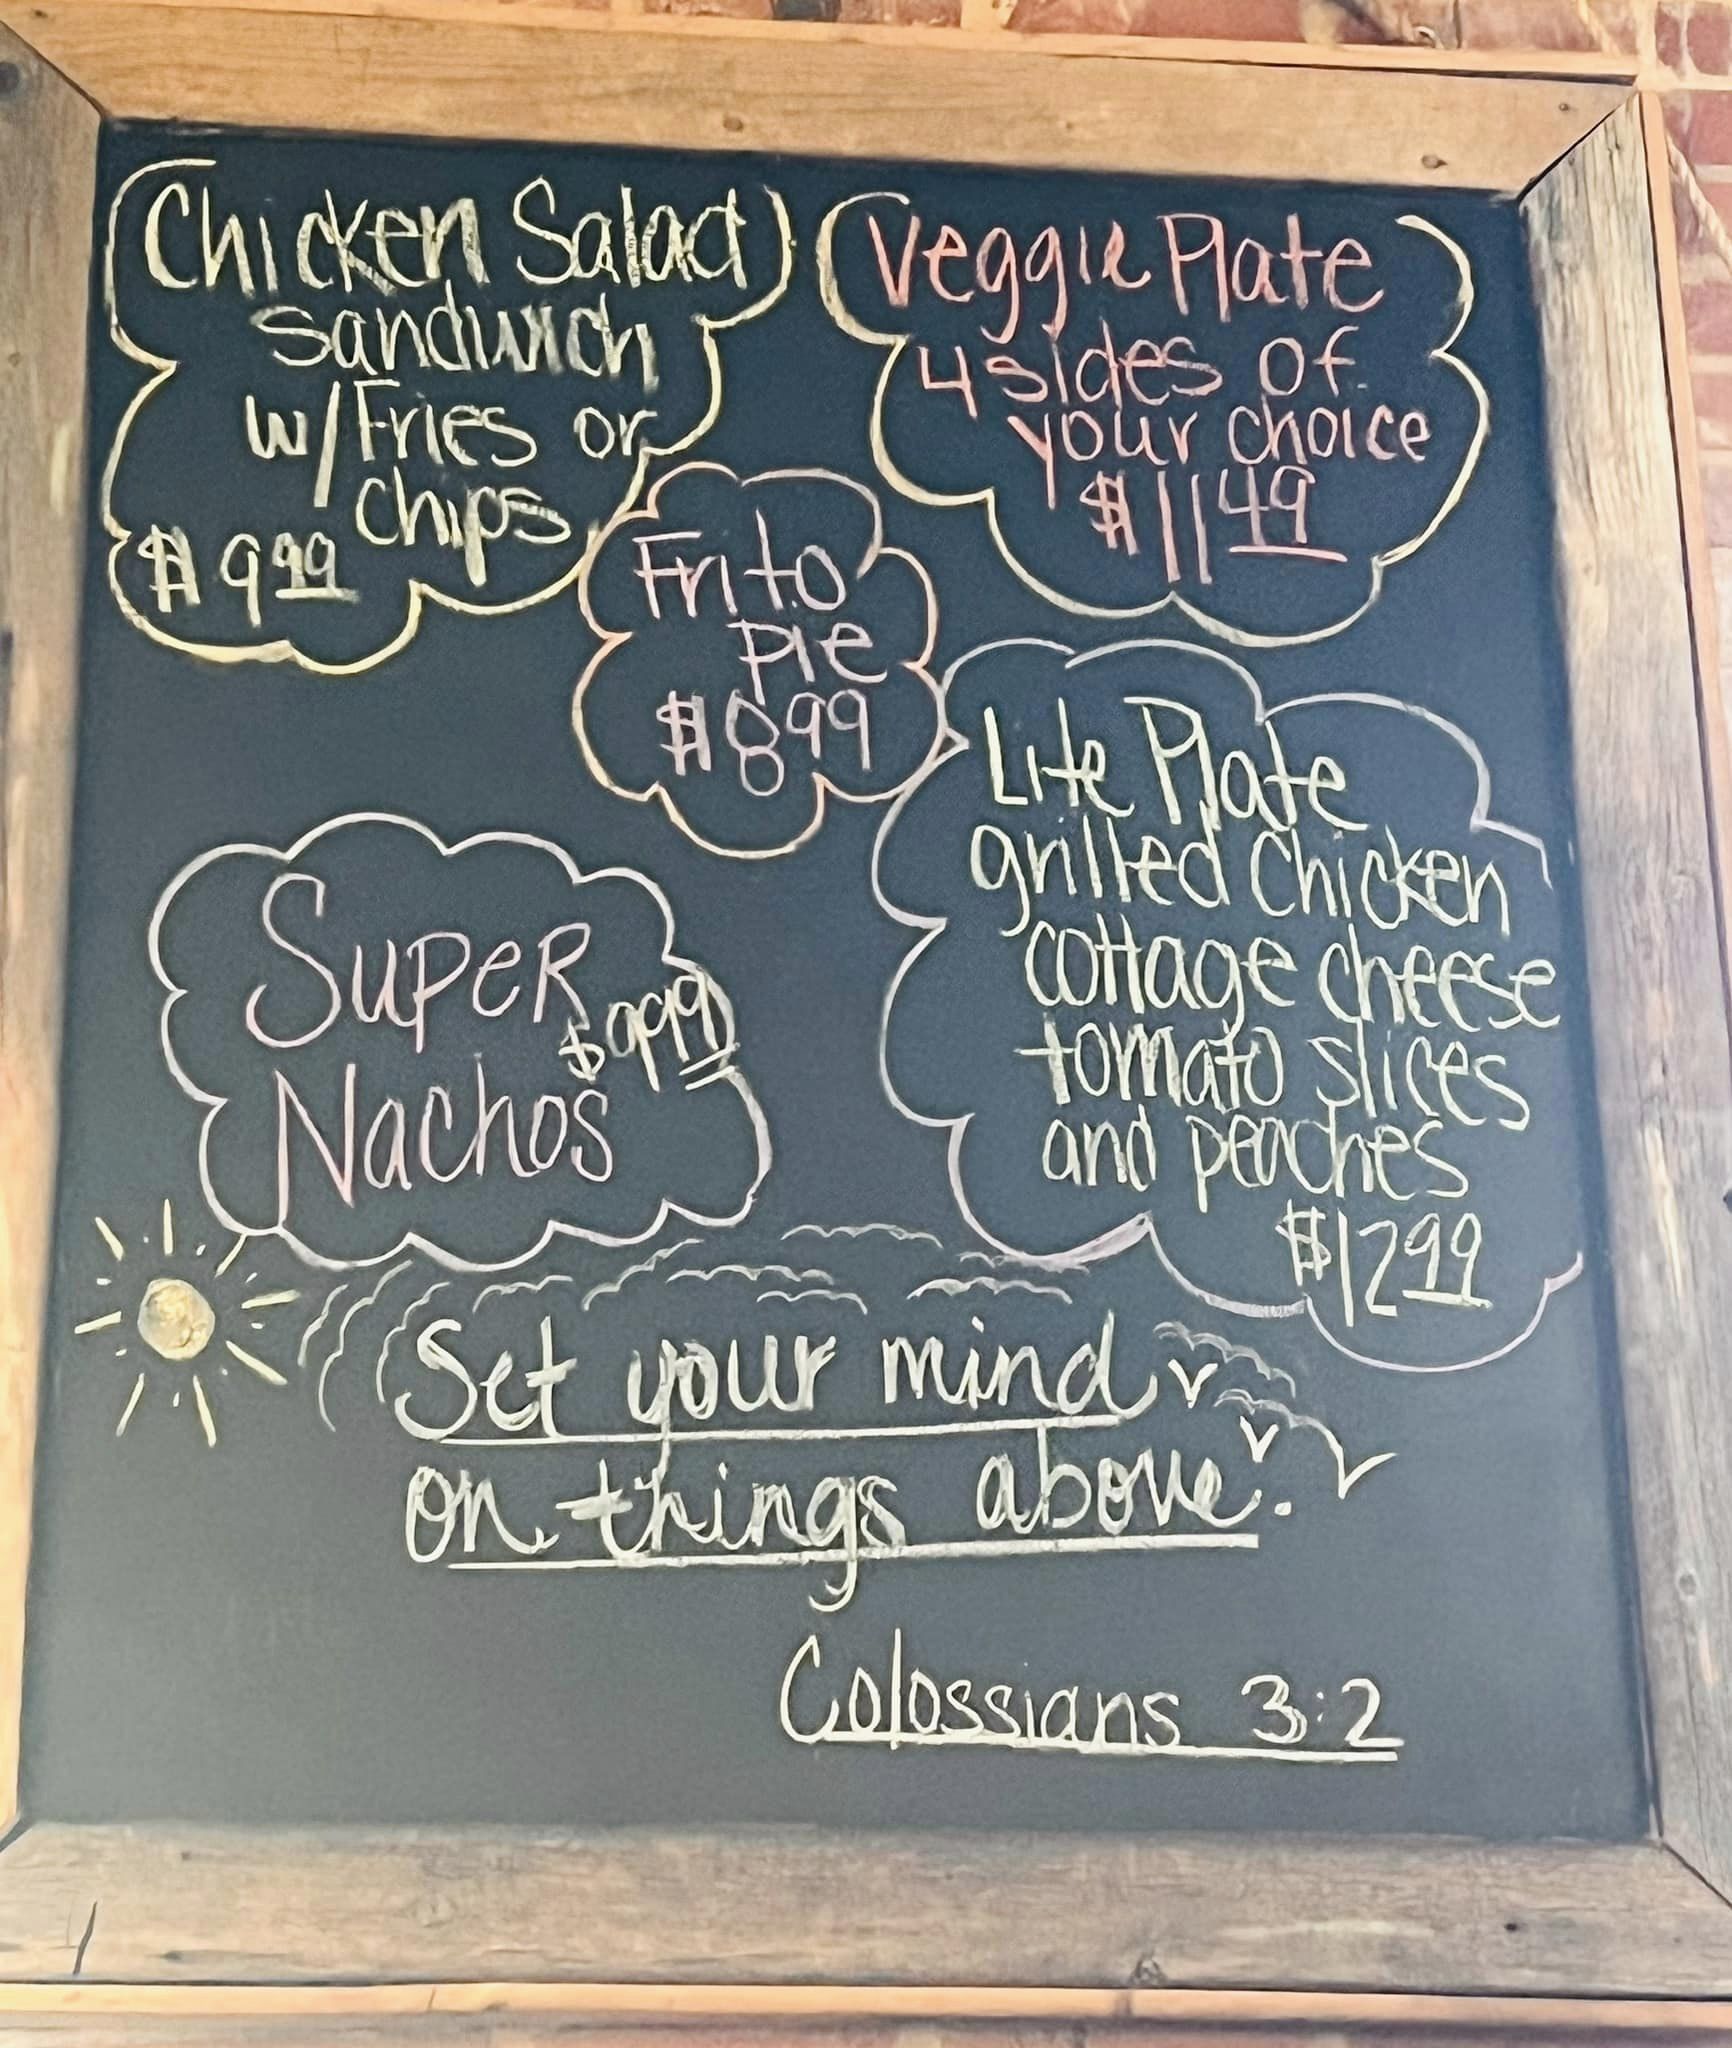 Chicken Salad
sandwich
w/Fries or
chips
$9.99
Veggie Plate
4 sides of
your choice
$11.49
Frito
Pie
$8.99
Super
$9.99
Nachos
Lite Plate
grilled chicken
cottage cheese
tomato slices
and peaches
$12.99
Set your mind
on things above.
Colossians 3:2